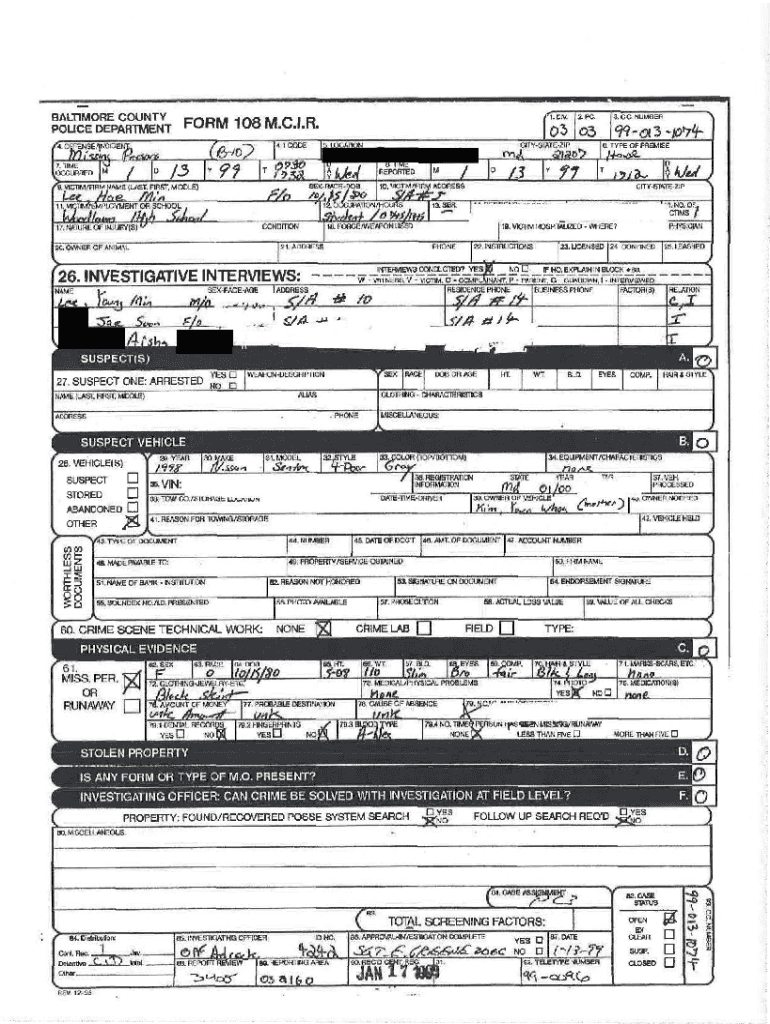 BALTIMORE COUNTY
POLICE DEPARTMENT
FORM 108 M.C.I.R.
1. DIV. 2. PC. 3. C.C. NUMBER
03 03 99-013-1074
4. OFFENSE/INCIDENT 4.1 CODE 5. LOCATION CITY-STATE-ZIP 6. TYPE OF PREMISE
Missing Persons (B-10) md 21207 House
7. TIME OCCURRED M 1 D 13 Y 99 T Wed 8. TIME REPORTED M 1 D 13 Y 99 T 1712 Wed
9. VICTIM/FIRM NAME (LAST, FIRST, MIDDLE) SEX-RACE-DOB 10. VICTIM/FIRM ADDRESS CITY-STATE-ZIP
Lee Hae Min F/o 10/15/80 S/A #5
11. VICTIM EMPLOYMENT OR SCHOOL 12. OCCUPATION/HOURS 13. SER. 1. NO. OF CTIMS
Woodlawn High School Student 1
17. NATURE OF INJURY(S) CONDITION 18. FORCE/WEAPON USED 19. VICTIM HOSPITALIZED - WHERE? PHYSICIAN
20. OWNER OF ANIMAL 21. ADDRESS PHONE 22. INSTRUCTIONS 23. LICENSED 24. CONFINED 25. LEASHED
26. INVESTIGATIVE INTERVIEWS:
INTERVIEWS CONDUCTED? YES NO IF NO, EXPLAIN IN BLOCK #80
W - WITNESS, V - VICTIM, C - COMPLAINANT, P - PARENT, G - GUARDIAN, I - INTERVIEWED
NAME SEX-RACE-AGE ADDRESS RESIDENCE PHONE BUSINESS PHONE FACTOR(S) RELATION
Lee, Young Min m/o S/A # 10 S/A # 14 C, I
Jae Soon F/o S/A S/A #14 I
Aisha I
SUSPECT(S) A. 0
27. SUSPECT ONE: ARRESTED YES NO WEAPON-DESCRIPTION SEX RACE DOB OR AGE HT. WT. BLD. EYES COMP. HAIR & STYLE
NAME (LAST, FIRST, MIDDLE) ALIAS CLOTHING - CHARACTERISTICS
ADDRESS PHONE MISCELLANEOUS
SUSPECT VEHICLE B. 0
28. VEHICLE(S) 29. YEAR 30. MAKE 31. MODEL 32. STYLE 33. COLOR (TOP/BOTTOM) 34. EQUIPMENT/CHARACTERISTICS
1998 Nissan Sentra 4-Door Gray none
SUSPECT 35. VIN: 36. REGISTRATION INFORMATION STATE YEAR TYPE 37. VEH. PROCESSED
md 01/00
STORED 38. TOW CO./STORAGE LOCATION DATE-TIME-DRIVER 39. OWNER OF VEHICLE 40. OWNER NOTIFIED
ABANDONED Kim, Youn Whan (mother)
OTHER 41. REASON FOR TOWING/STORAGE 42. VEHICLE HELD
WORTHLESS DOCUMENTS
43. TYPE OF DOCUMENT 44. NUMBER 45. DATE OF DOC'T 46. AMT. OF DOCUMENT 47. ACCOUNT NUMBER
48. MADE PAYABLE TO: 49. PROPERTY/SERVICE OBTAINED 50. FIRM NAME
51. NAME OF BANK - INSTITUTION 52. REASON NOT HONORED 53. SIGNATURE ON DOCUMENT 54. ENDORSEMENT SIGNATURE
56. PHOTO AVAILABLE 57. PROSECUTION 58. ACTUAL LOSS VALUE 59. VALUE OF ALL CHECKS
60. CRIME SCENE TECHNICAL WORK: NONE CRIME LAB FIELD TYPE:
PHYSICAL EVIDENCE C. 0
61. MISS. PER. OR RUNAWAY
62. SEX 63. RACE 64. DOB 65. HT. 66. WT. 67. BLD. 68. EYES 69. COMP. 70. HAIR & STYLE 71. MARKS-SCARS, ETC.
F O 10/15/80 5-08 110 Slim Bro fair Blk & Long None
72. CLOTHING-JEWELRY-ETC. 73. MEDICAL/PHYSICAL PROBLEMS 74. PHOTO 75. MEDICATION(S)
Black Skirt None YES NO none
76. AMOUNT OF MONEY 77. PROBABLE DESTINATION 78. CAUSE OF ABSENCE
unk Amount unk unk
79.1 DENTAL RECORDS 79.2 FINGERPRINTS 79.3 BLOOD TYPE 79.4 NO. TIMES PERSON HAS BEEN MISSING/RUNAWAY
YES NO YES NO NONE LESS THAN FIVE MORE THAN FIVE
STOLEN PROPERTY D. 0
IS ANY FORM OR TYPE OF M.O. PRESENT? E. 0
INVESTIGATING OFFICER: CAN CRIME BE SOLVED WITH INVESTIGATION AT FIELD LEVEL? F. 0
PROPERTY: FOUND/RECOVERED POSSE SYSTEM SEARCH YES NO FOLLOW UP SEARCH REQ'D YES NO
80. MISCELLANEOUS
81. CASE ASSIGNMENT 82. CASE STATUS
83. TOTAL SCREENING FACTORS:
OPEN
EX CLEAR
SUSP.
CLOSED
99-013-1074
C.C. NUMBER
84. Distribution: 85. INVESTIGATING OFFICER ID NO. 86. APPROVAL-INVESTIGATION COMPLETE YES NO 87. DATE
Cent. Rec. 1 Juv.
Off Adcock 4242 SGT. E. GREENE 1-13-99
Detective Intel
Other
88. REPORT REVIEW 89. REPORTING AREA 90. REC'D CENT. REC. 91. 92. TELETYPE NUMBER
3405 032160 JAN 17 1999 99-0096
REV 12-93